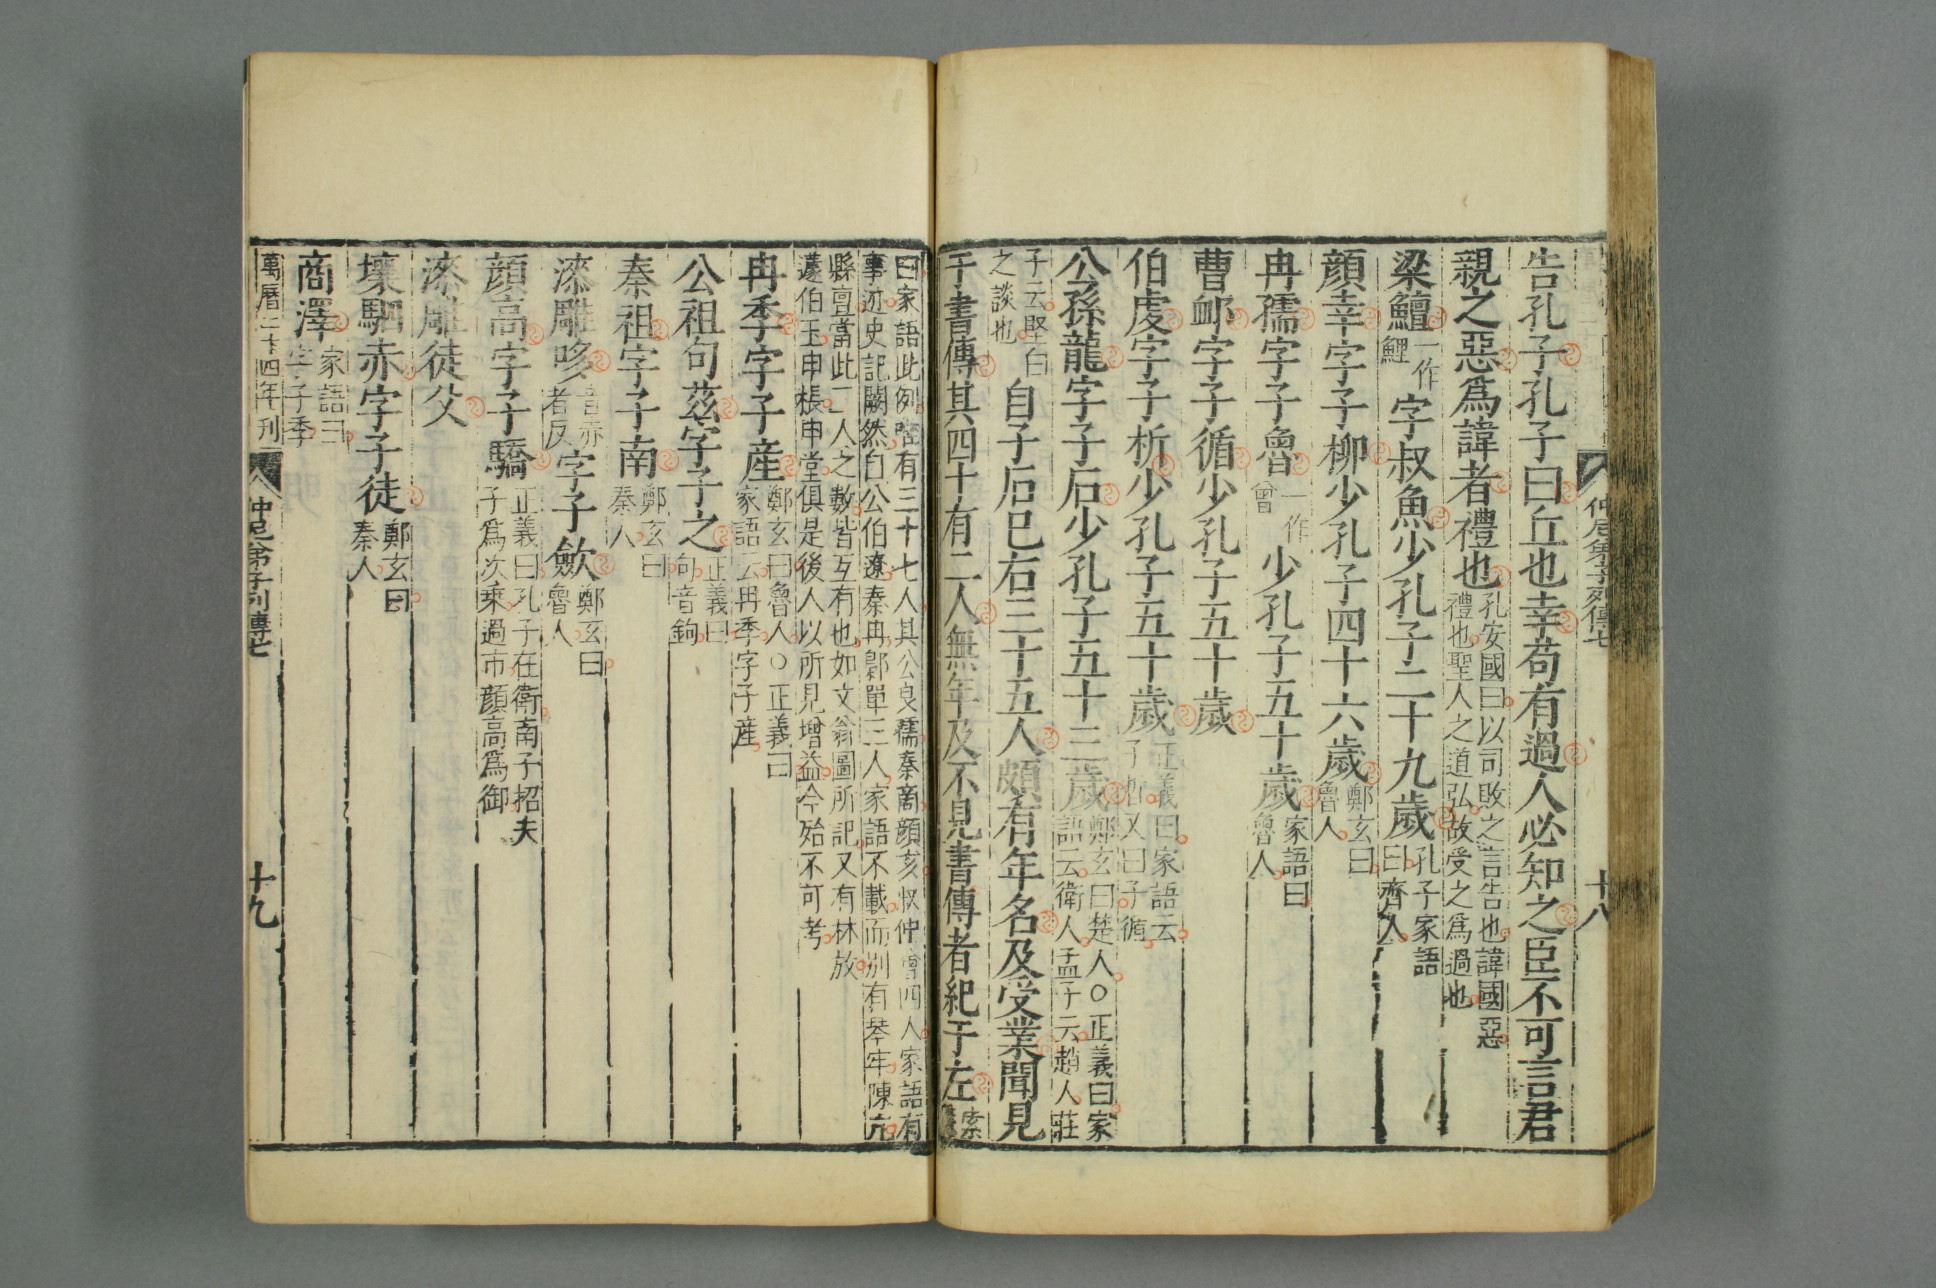 仲尼弟子列傳七
十八
告孔子孔子曰丘也幸苟有過人必知之臣不可言君
親之惡爲諱者禮也孔安國曰以司敗之言告也諱國惡禮也聖人之道弘故受之爲過也
梁鱣一作鯉字叔魚少孔子二十九歲孔子家語曰齊人
顔幸字子柳少孔子四十六歲鄭玄曰魯人
冉孺字子魯一作曾少孔子五十歲家語曰魯人
曹卹字子循少孔子五十歲
伯虔字子析少孔子五十歲正義曰家語云子晳又曰子循
公孫龍字子石少孔子五十三歲鄭玄曰楚人○正義曰家語云衛人孟子云趙人莊
子云堅白之談也自子石已右三十五人頗有年名及受業聞見
于書傳其四十有二人無年及不見書傳者紀于左索隱
曰家語此例唯有三十七人其公良孺秦商顔亥叔仲會四人家語有
事迹史記闕然自公伯遼秦冉鄡單三人家語不載而別有琴牢陳亢
縣亶當此二人之數皆互有也如文翁圖所記又有林放
蘧伯玉申棖申堂俱是後人以所見增益今殆不可考
冉季字子産鄭玄曰魯人○正義曰家語云冉季字子産
公祖句茲字子之正義曰句音鉤
秦祖字子南鄭玄曰秦人
漆雕哆音赤者反字子歛鄭玄曰魯人
顔高字子驕正義曰孔子在衛南子招夫子爲次乘過市顔高爲御
漆雕徒父
壤駟赤字子徒鄭玄曰秦人
商澤家語曰字子季
萬曆二十四年刊
仲尼弟子列傳七
十九